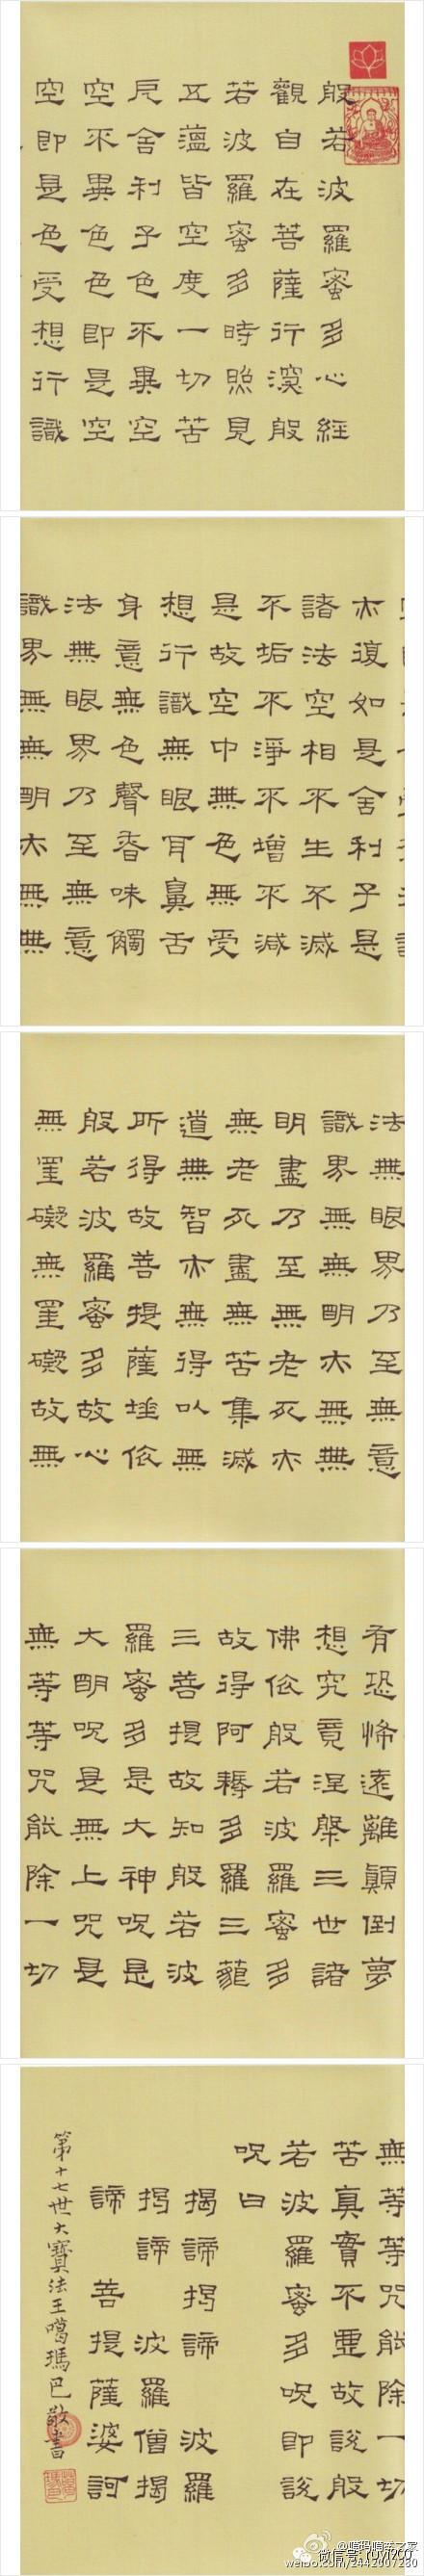 般若波羅蜜多心經
觀自在菩薩行深般
若波羅蜜多時照見
五蘊皆空度一切苦
厄舍利子色不異空
空不異色色即是空
空即是色受想行識
亦復如是舍利子是
諸法空相不生不滅
不垢不淨不增不減
是故空中無色無受
想行識無眼耳鼻舌
身意無色聲香味觸
法無眼界乃至無意
識界無無明亦無無
法無眼界乃至無意
識界無無明亦無無
明盡乃至無老死亦
無老死盡無苦集滅
道無智亦無得以無
所得故菩提薩埵依
般若波羅蜜多故心
無罣礙無罣礙故無
有恐怖遠離顛倒夢
想究竟涅槃三世諸
佛依般若波羅蜜多
故得阿耨多羅三藐
三菩提故知般若波
羅蜜多是大神呪是
大明呪是無上咒是
無等等咒能除一切
無等等咒能除一切
苦真實不虛故說般
若波羅蜜多呪即說
呪曰
揭諦揭諦 波羅
揭諦 波羅僧揭
諦 菩提薩婆訶
第十七世大寶法王噶瑪巴敬書
weibo.com/2442007280